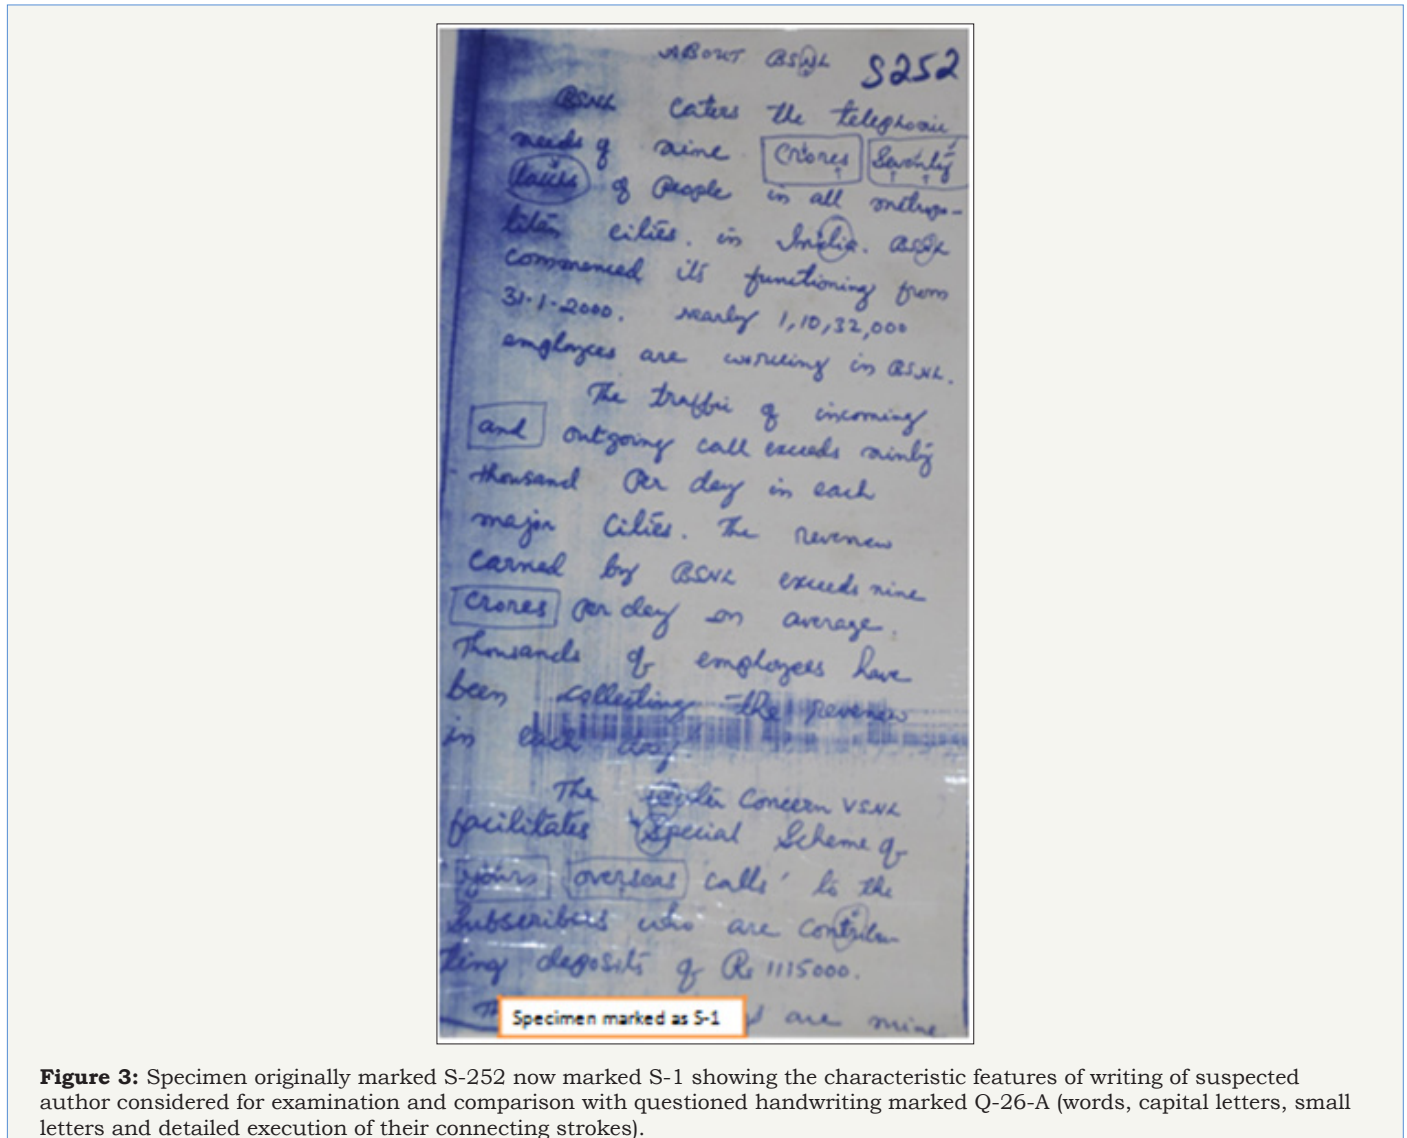 ABOUT BSNL S252
BSNL caters the telephonic
needs of nine Crores Seventy
lakhs of People in all metropo-
liten cities. in India. BSNL
commenced its functioning from
31-1-2000. nearly 1,10,32,000
employees are working in BSNL.
The traffic of incoming
and outgoing call exceeds ninty
thousand Per day in each
major Cities. The revenew
earned by BSNL exceeds nine
Crores Per day on average.
Thousands of employees have
been collecting the revenew
in each day.
The Concern VSNL
facilitates Special Scheme of
yours overseas calls' to the
Subscribers who are contribu-
ting deposits of Rs 1115000.
are mine
Specimen marked as S-1
Figure 3: Specimen originally marked S-252 now marked S-1 showing the characteristic features of writing of suspected
author considered for examination and comparison with questioned handwriting marked Q-26-A (words, capital letters, small
letters and detailed execution of their connecting strokes).